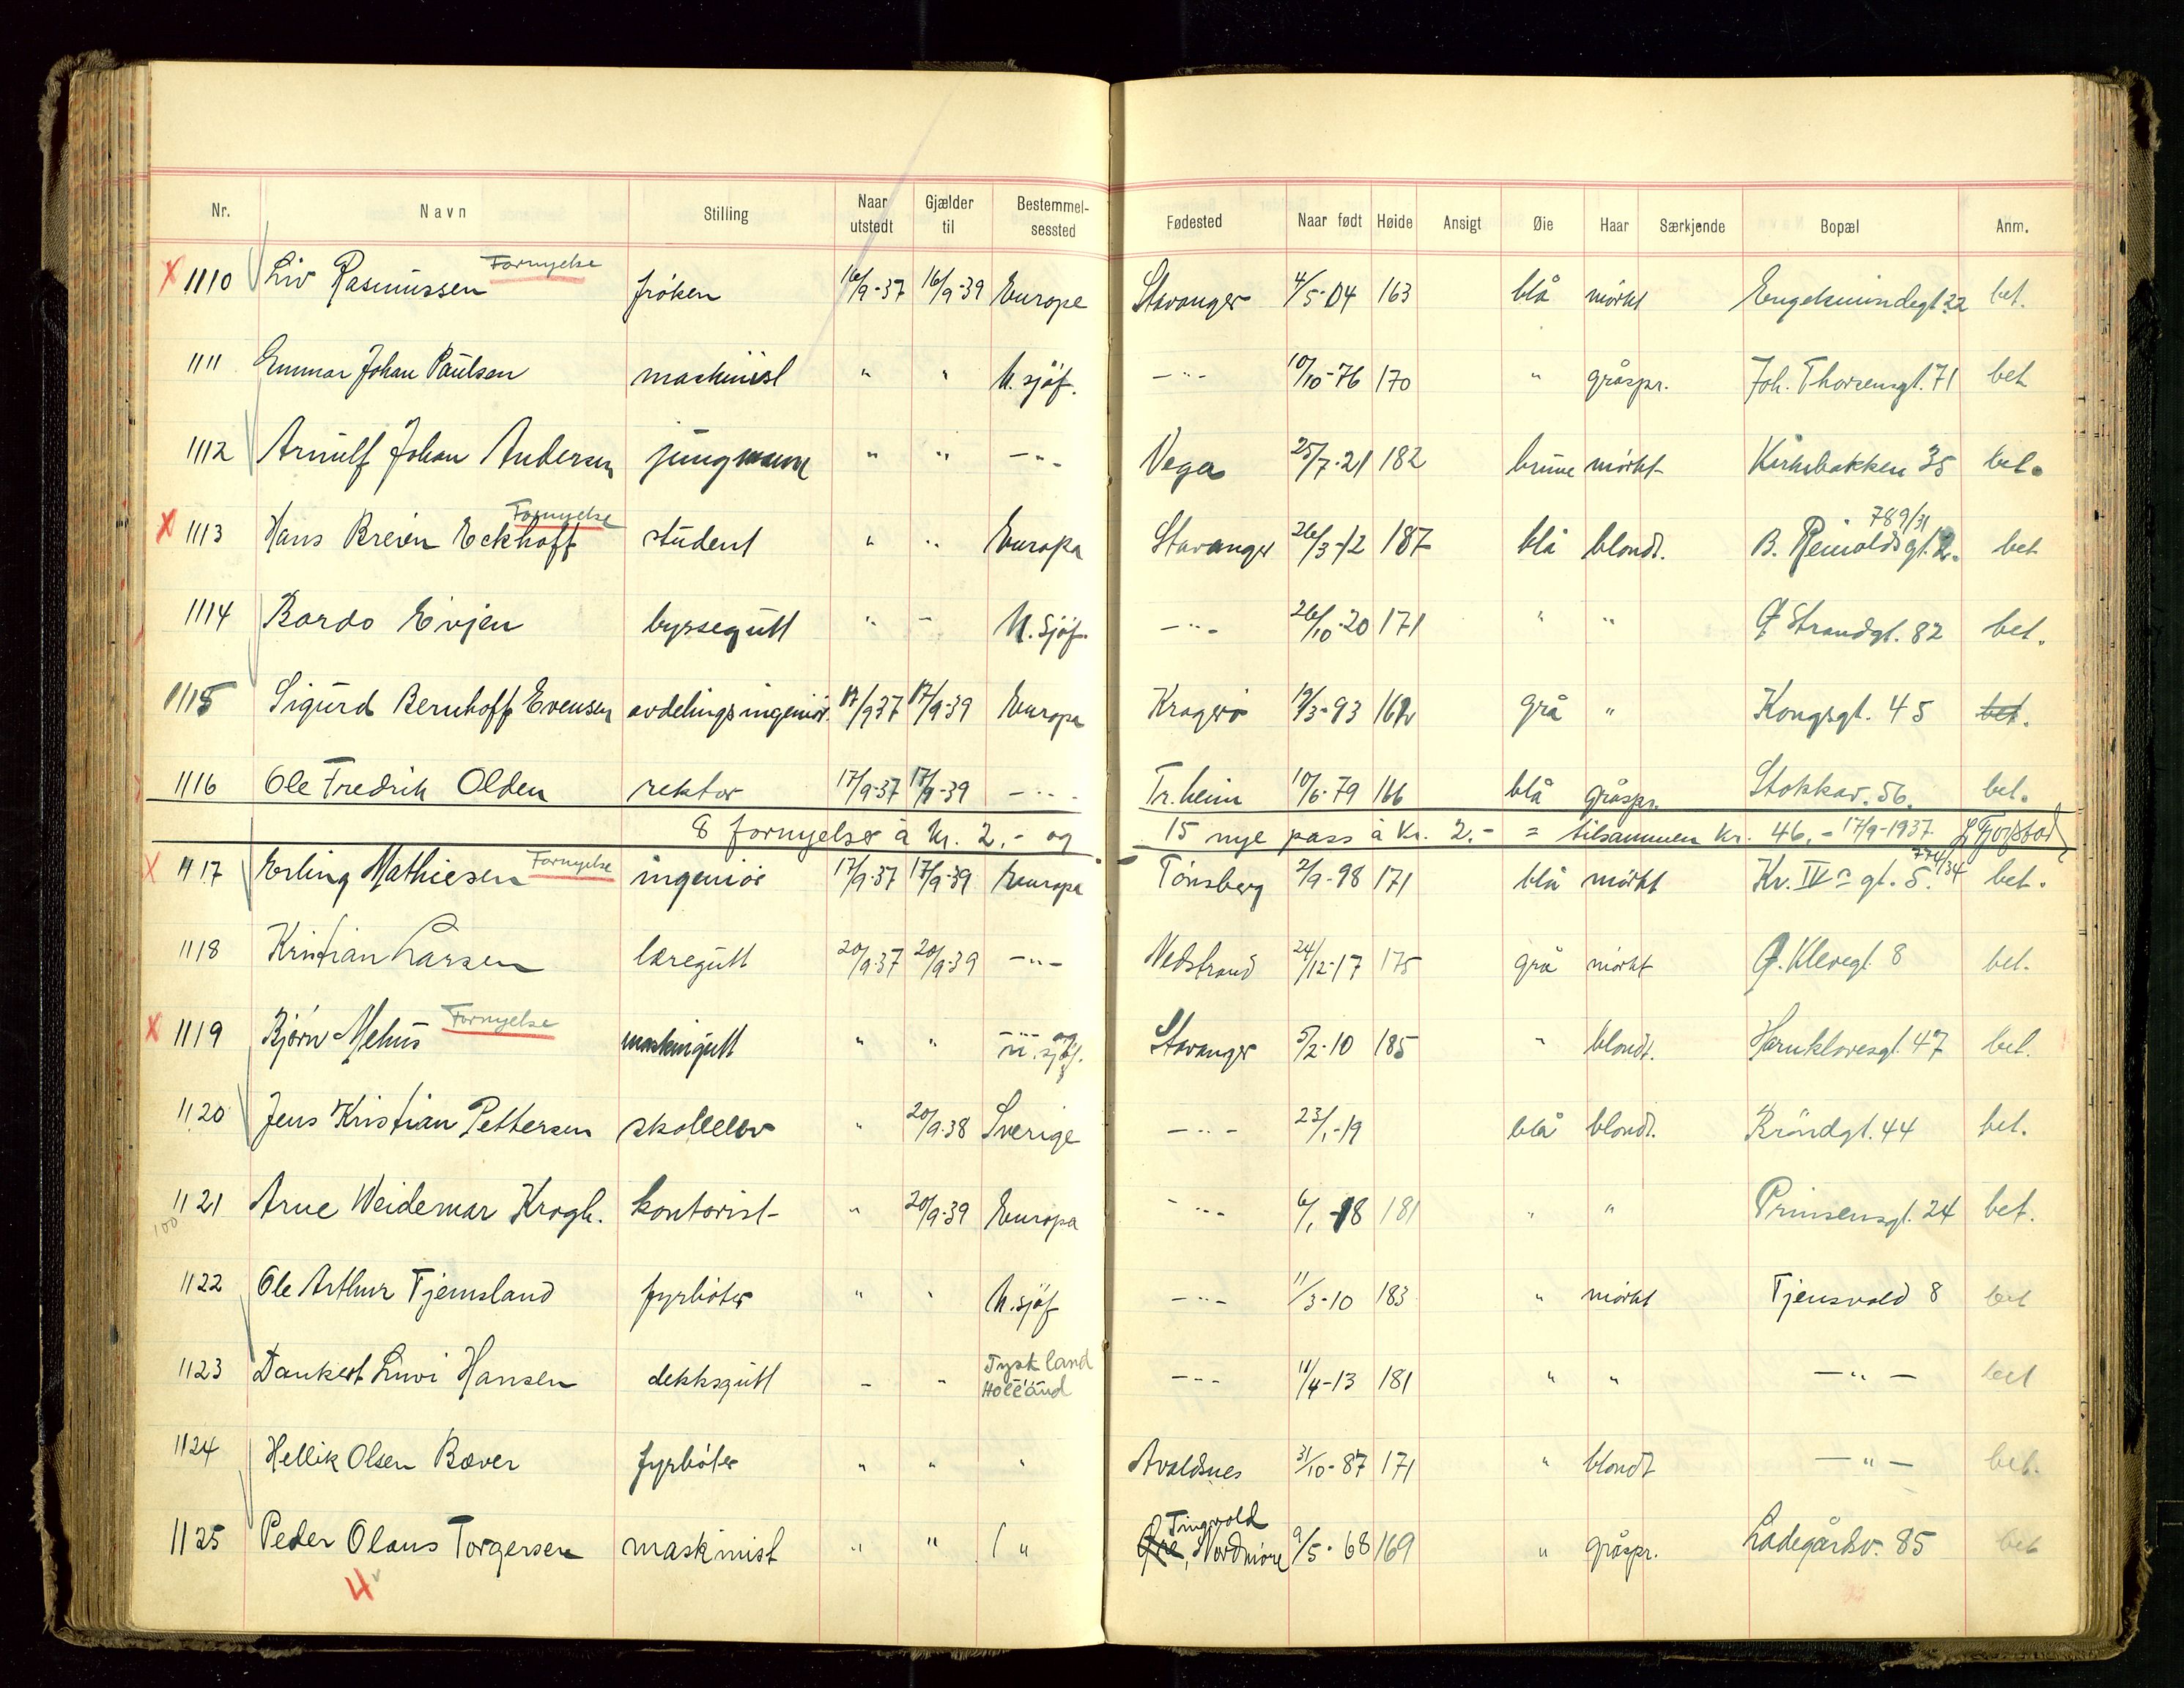 Nr. Navn Stilling Naar utstedt Gjælder til Bestemmelsessted Fødested Naar født Høide Ansigt Øie Haar Særkjende Bopæl Anm.
x 1110 Liv Rasmussen Fornyelse frøken 16/9-37 16/9-39 Europa Stavanger 4/5-04 163 blå mørkt Engelsmindegt. 22 bet.
1111 Gunnar Johan Paulsen maskinist " " U. sjøf. -"- 10/10-76 170 " gråspr. Joh. Thorsensgt. 71 bet
1112 Arnulf Johan Andersen jungmann " " -"- Vega 25/7-21 182 brune mørkt Kirkebakken 35 bet.
x 1113 Hans Breien Eckhoff Fornyelse student " " Europa Stavanger 26/3-12 187 blå blondt. B. Reinoldsgt. 2. 789/31 bet
1114 Bardo Evjen byssegutt " - U. sjøf. -"- 26/10-20 171 " " Ø Strandgt. 82 bet.
1115 Sigurd Bernhoff Evensen avdelingsingeniør 17/9 37 17/9-39 Europa Kragerø /3-93 162 grå " Kongsgt. 45 bet.
1116 Ole Fredrik Olden rektor 17/9-37 17/9-39 -"- Tr.heim 10/6-79 166 blå gråspr. Stokkav. 56. bet.
8 fornyelser à kr. 2,- og 15 nye pass à kr. 2.- = tilsammen kr. 46,- 17/9-1937
x 1117 Erling Mathiesen Fornyelse ingeniør 17/9-37 17/9-39 Europa Tønsberg 2/9-98 171 blå mørkt Kr. IVs gt. 5. 774/34 bet.
1118 Kristian Larsen læregutt 20/9-37 20/9-39 -"- Nedstrand 24/12-17 175 grå mørkt Ø. Klevegt. 8 bet.
x 1119 Bjørn Mehus Fornyelse maskingutt " " -"- og u. sjøf. Stavanger 5/2-10 185 " blondt. Harald 47 bet.
1120 Jens Kristian Pettersen skoleelev " 20/9-38 Sverige -"- 23/1-19 blå blondt. Brøndgt. 44 bet.
1121 100 Arne Weidemar Krogh. kontorist " 20/9-39 Europa -"- 6/1-18 181 " " Prinsensgt. 24 bet.
1122 Ole Arthur Tjemsland fyrbøter " " U. sjøf -"- 11/3-10 183 " mørkt Tjensvold 8 bet
1123 Dankert Livi Hansen dekksgutt - " Tyskland Holland -"- 11/4-13 181 " " -"- bet
1124 Hellik Olsen Bæver fyrbøter " " " Avaldsnes 31/10-87 171 " blondt -"- bet.
1125 Peder Olaus Torgersen maskinist " " " Tingvold Øre, Nordmøre 9/5-68 169 " gråspr. Ladegårdsv. 85 bet
4